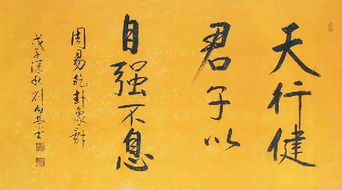 天行健
君子以
自强不息
周易乾卦象辞
戊子深秋刘向芸书